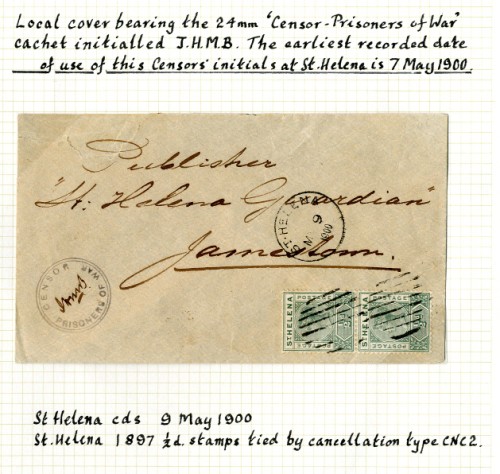 Local cover bearing the 24mm 'Censor-Prisoners of War'
cachet initialled J.H.M.B. The earliest recorded date
of use of this Censors' initials at St. Helena is 7 May 1900.
Publisher
"St: Helena Guardian"
Jamestown.
ST. HELENA
9
1900
CENSOR
PRISONERS OF WAR
ST HELENA
POSTAGE
ST HELENA
POSTAGE
St Helena cds 9 May 1900
St. Helena 1897 ½d. stamps tied by cancellation type CNC2.